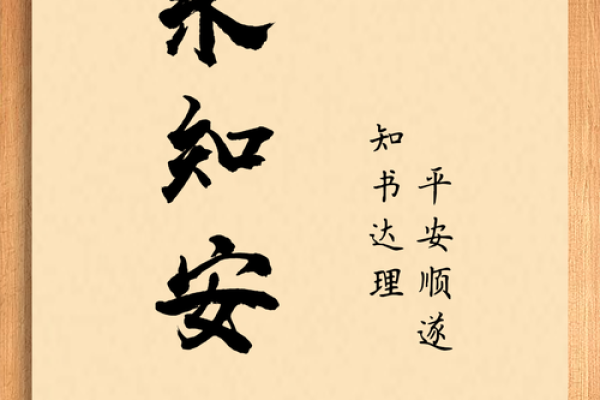 知安
知书达理
平安顺遂